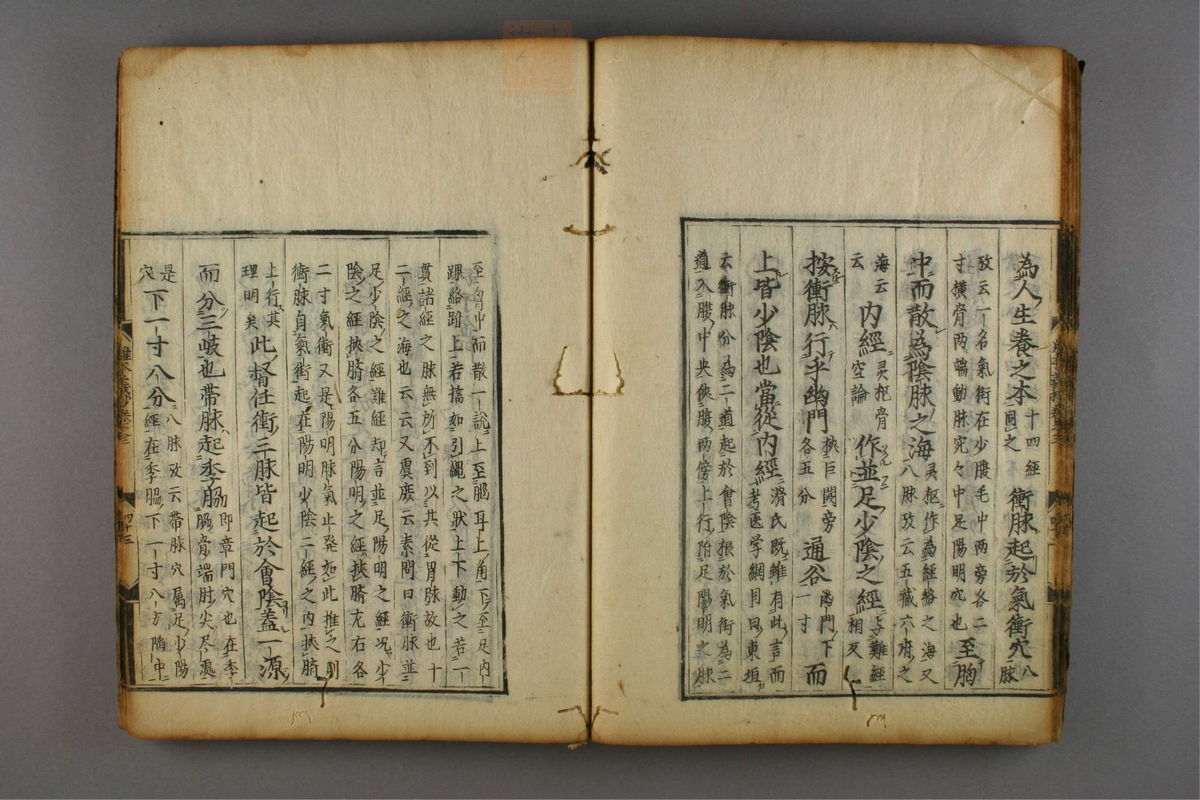 為人生養之本十四經同之衝脉起於氣衝穴八脉
攷云一名氣街在少腹毛中兩旁各二寸橫骨兩端動脉宛々中足陽明穴也至胸
中而散為陰脉之海灵枢作為經絡之海又八脉攷云五臟六府之
海云云内經灵枢骨空論作並足少陰之經与難經相反
按衝脉行乎幽門挾巨闕旁各五分通谷幽門下一寸而
上皆少陰也當從内經滑氏既雖有此言而考医学綱目曰東垣
云衝脉分為二道起於會陰根於氣街為二道入腹中央俠腹兩傍上行附足陽明之脉
至胷中而散一說上至腦耳上角下至足内踝絡跗上若搐如引繩之狀上下動之若一
貫諸經之脉無所不到以其從胃脉故也十二經之海也云云又虞庶云素問曰衝脉並
足少陰之經難經却言並足陽明之經况少陰之經挾臍各五分陽明之經挾臍左右各
二寸氣衝又是陽明脉氣止発如此推之則衝脉自氣衝起在陽明少陰二經之内挾臍
上行其理明矣此督任衝三脉皆起於會陰蓋一源
而分三岐也帶脉起季脇即章門穴也在季脇骨端肘尖尽處
是穴下一寸八分八脉攷云帶脉穴属足少陽經在季脇下一寸八分陷中